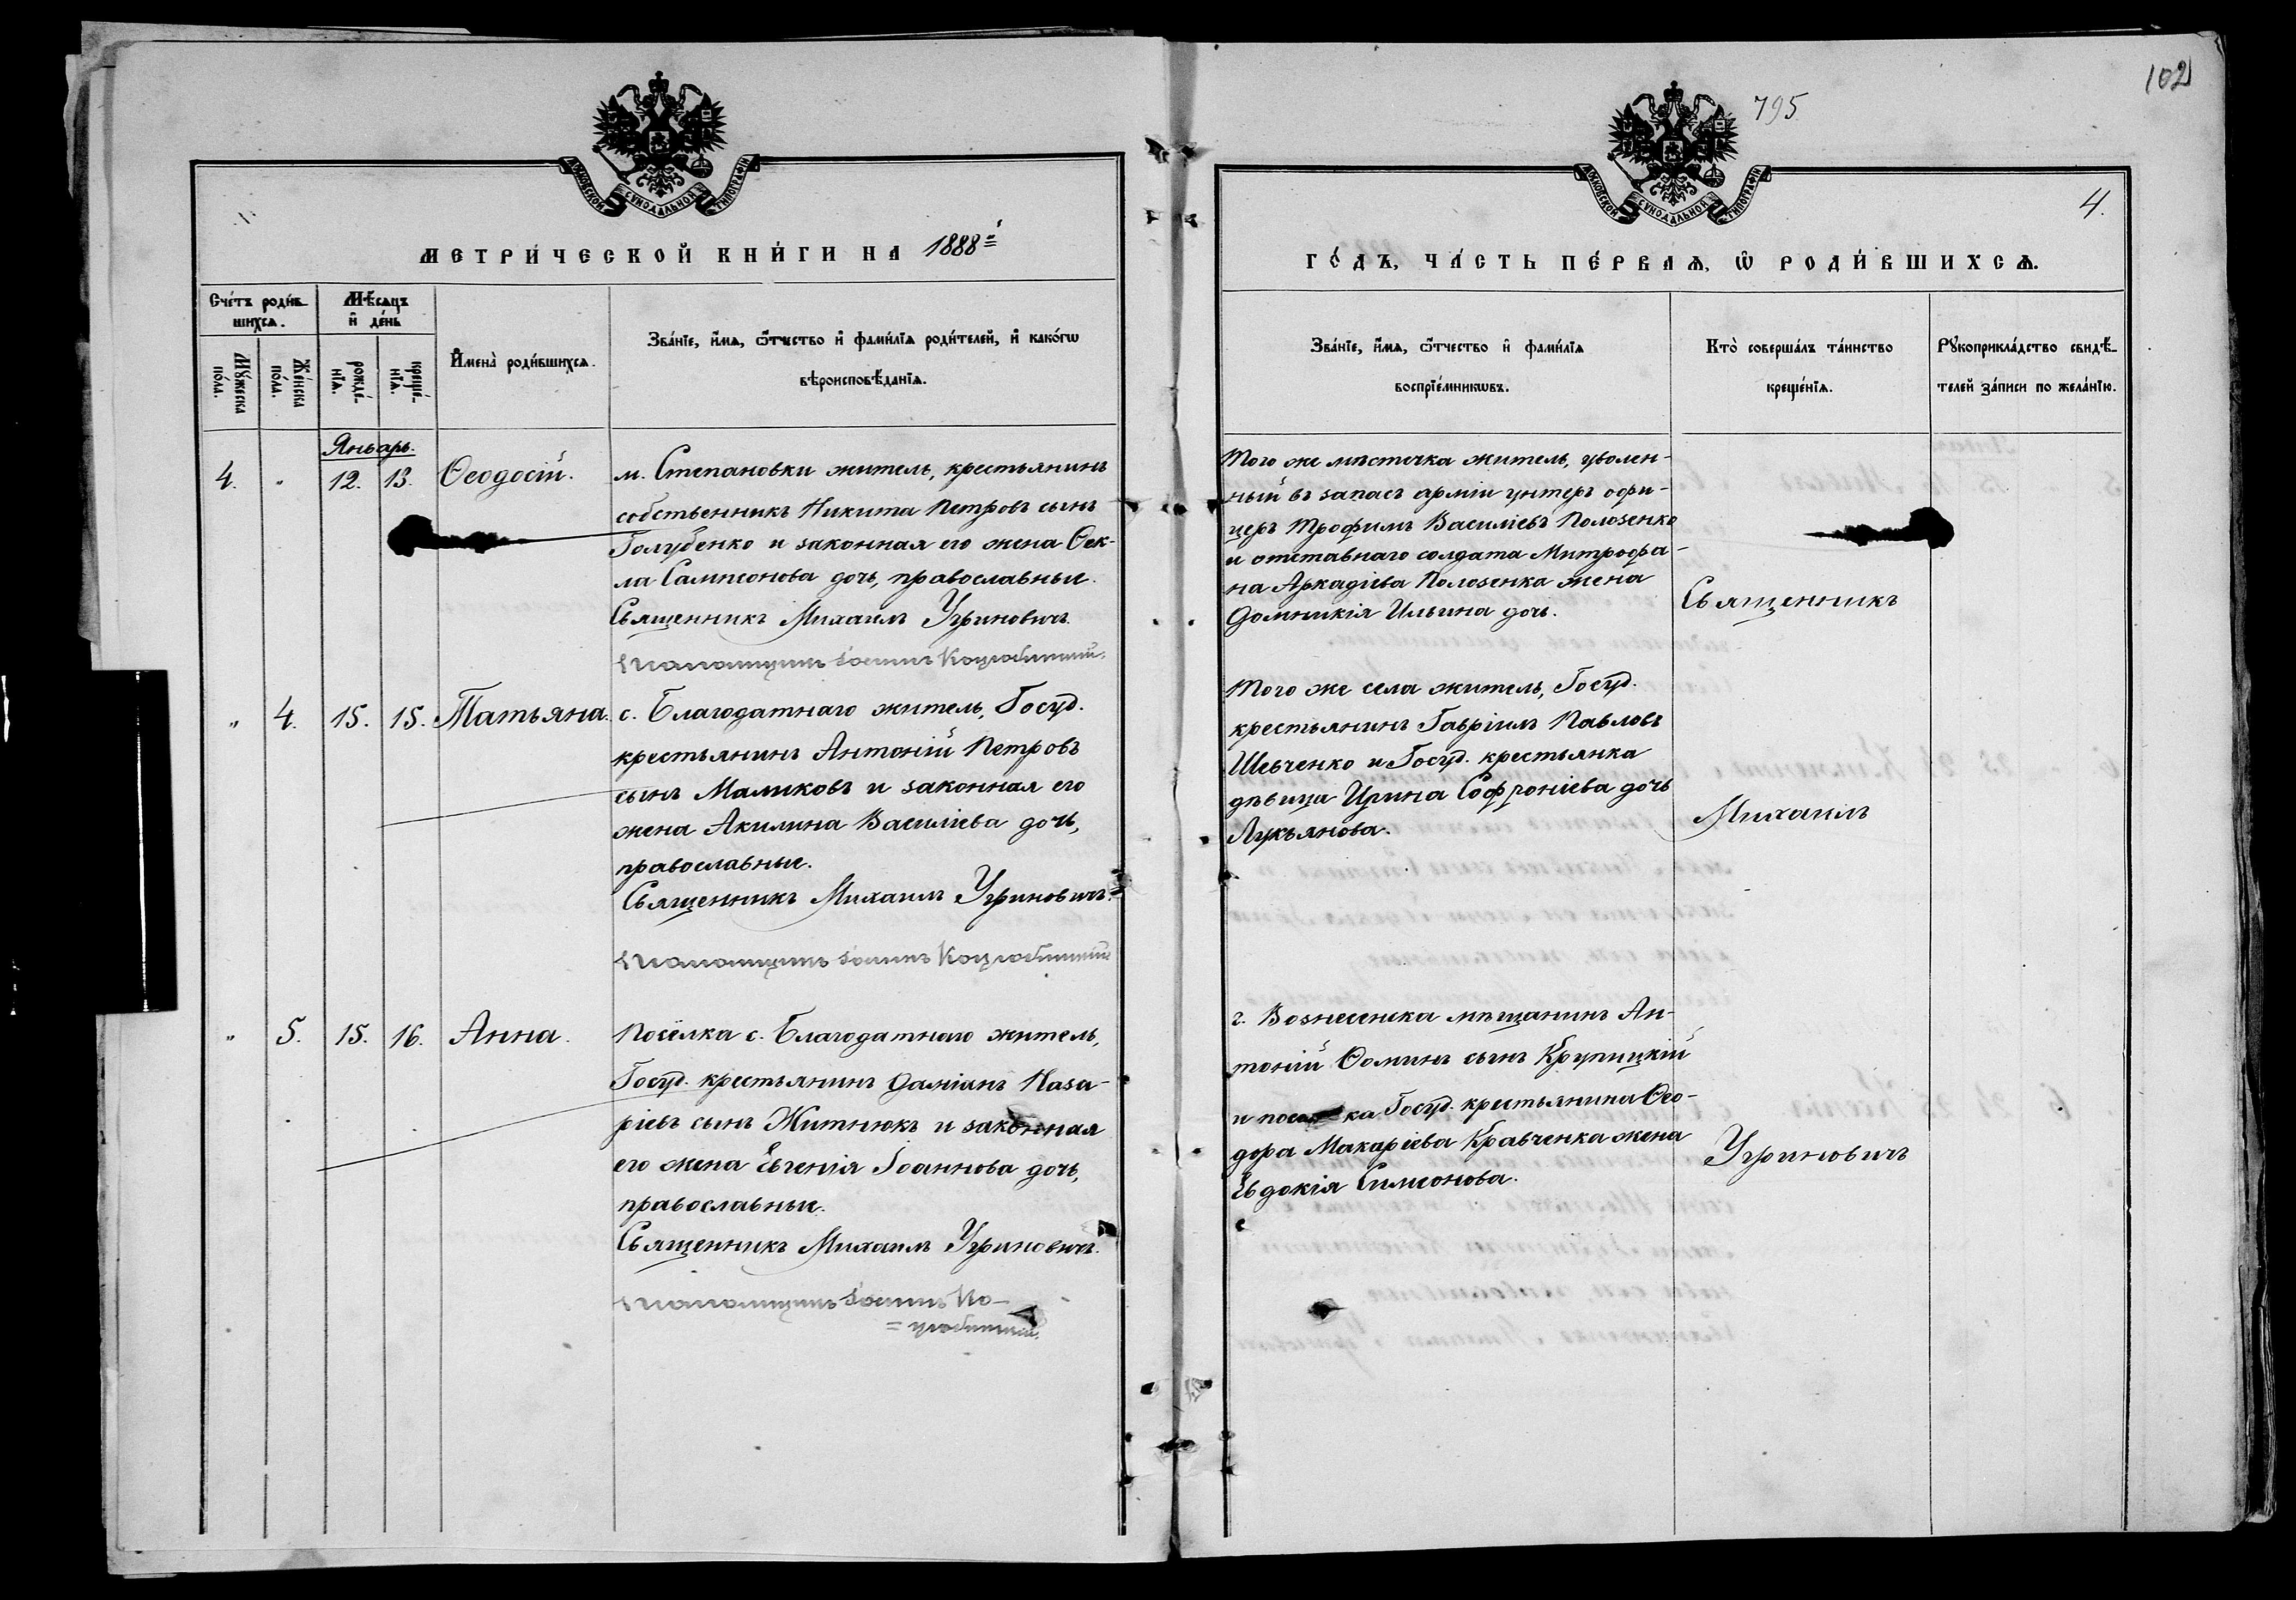 102
795
4.
МОСКОВСКОЙ СѴНОДАЛЬНОЙ ТИПОГРАФІИ
МОСКОВСКОЙ СѴНОДАЛЬНОЙ ТИПОГРАФІИ
МЕТРИ́ЧЕСКОЙ КНИ́ГИ НА 1888й
ГО́ДЪ, ЧА́СТЬ ПЕ́РВАѦ, Ѡ҆ РОДИ́ВШИХСѦ.
Сче́тъ роди́в-
шихсѧ.
Мꙋ́жеска по́ла.
Же́нска по́ла.
Мѣ́сѧцъ
и҆ де́нь
рожде́-
нїѧ.
креще́-
нїѧ.
И҆мена̀ роди́вшихсѧ.
Зва́нїе, и҆́мѧ, ѻ҆́тчество и҆ фами́лїѧ роди́телей, и҆ како́гѡ
вѣроисповѣ́данїѧ.
Зва́нїе, и҆́мѧ, ѻ҆́тчество и҆ фами́лїѧ
воспрїе́мникѡвъ.
Кто̀ соверша́лъ та́инство
креще́нїѧ.
Рꙋкоприкла́дство свидѣ́-
телей за́писи по жела́нїю.
Январь.
4. " 12. 13. Ѳеодосій.
м. Степановки житель, крестьянинъ
собственникъ Никита Петровъ сынъ
Голубенко и законная его жена Ѳек-
ла Сампсонова дочь, православные.
Священникъ Михаилъ Угриновичъ.
Псаломщикъ Іоаннъ Коцюбинскій.
Того же мѣстечка житель, уволен-
ный въ запасъ арміи унтеръ офи-
церъ Трофимъ Василіевъ Полозенко
и отставнаго солдата Митрофа-
на Аркадіева Полозенка жена
Домникія Ильина дочь.
Священникъ
" 4. 15. 15. Татьяна.
с. Благодатнаго житель, Госуд.
крестьянинъ Антоній Петровъ
сынъ Маликовъ и законная его
жена Акилина Василіева дочь,
православные.
Священникъ Михаилъ Угриновичъ.
Псаломщикъ Іоаннъ Коцюбинскій
Того же села житель, Госуд.
крестьянинъ Гавріилъ Павловъ
Шевченко и Госуд. крестьянка
дѣвица Ирина Софроніева дочь
Лукьянова.
Михаилъ
" 5. 15. 16. Анна.
Посёлка с. Благодатнаго житель,
Госуд. крестьянинъ Даміанъ Наза-
ріевъ сынъ Житнюкъ и законная
его жена Евгенія Іоаннова дочь,
православные.
Священникъ Михаилъ Угриновичъ.
Псаломщикъ Іоаннъ Ко-
=цюбинскій.
г. Вознесенска мѣщанинъ Ан-
тоній Ѳоминъ сынъ Крупицкій
и поселка Госуд. крестьянина Ѳео-
дора Макаріева Кравченка жена
Евдокія Симеонова.
Угриновичъ